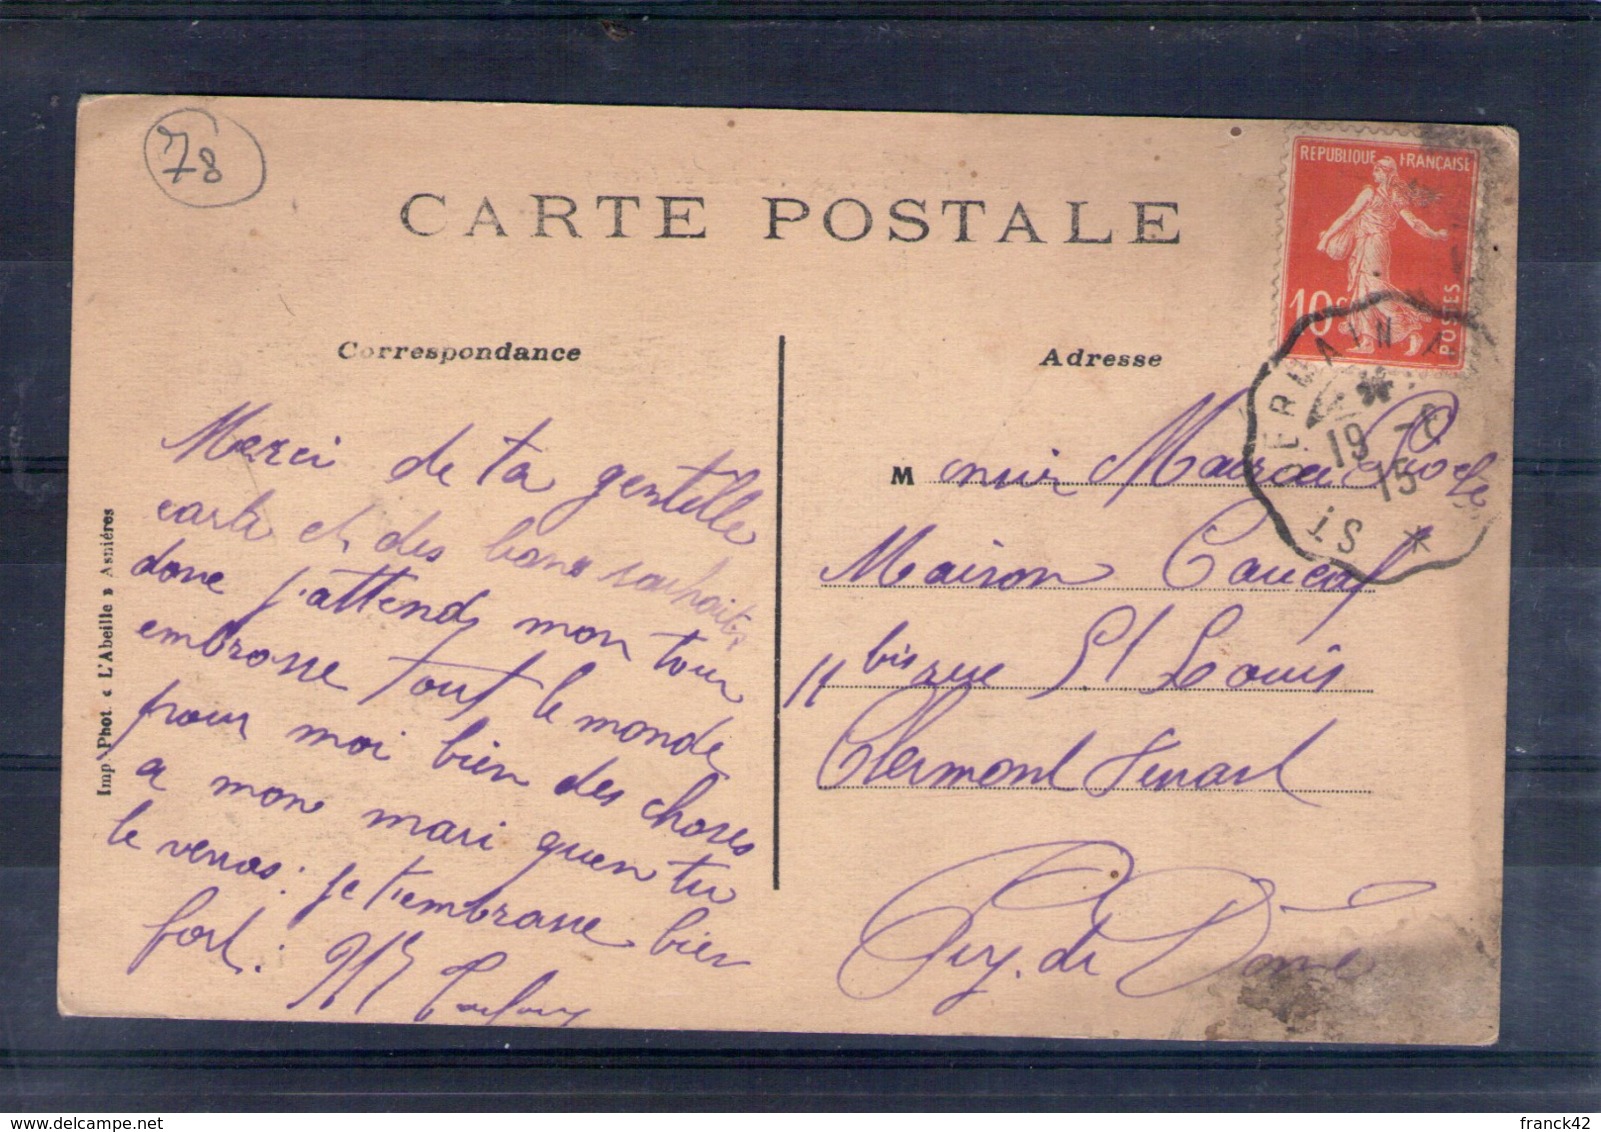 78
CARTE POSTALE
REPUBLIQUE FRANÇAISE
10c
POSTES
ERMAIN A
19
15
St
Correspondance
Adresse
Merci de ta gentille
carte et des bons souhaits
donc j'attend mon tour
embrasse tout le monde
pour moi bien des choses
a mon mari quen tu
le verras : je t'embrasse bien
fort :
M
Maison
11 bis rue St Louis
Clermont Ferrand
Puy. de Dôme
Imp. Phot. « L'Abeille » Asnières
franck42